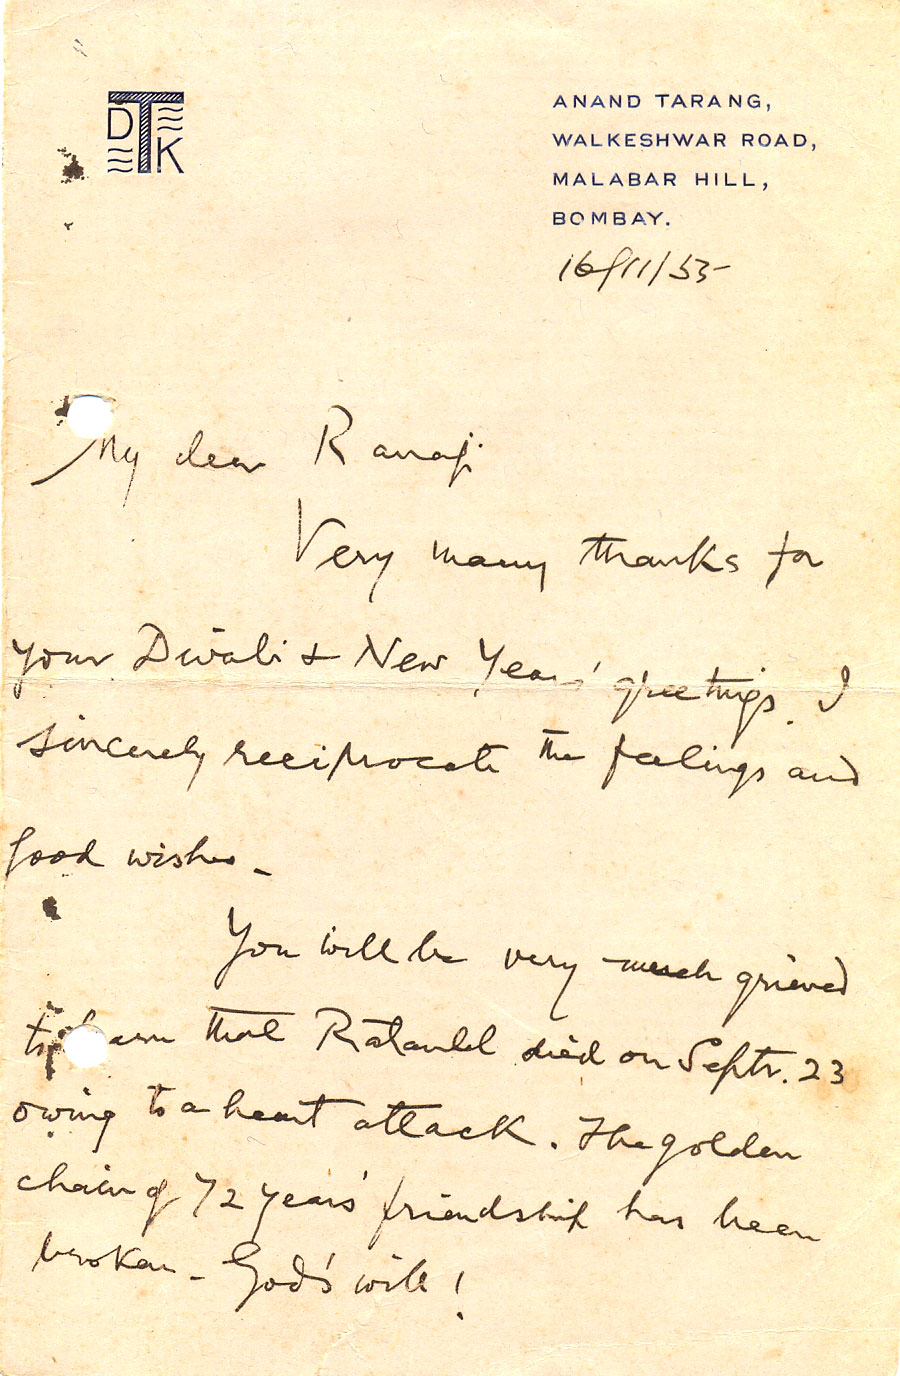 DTK
ANAND TARANG,
WALKESHWAR ROAD,
MALABAR HILL,
BOMBAY.
16/11/53
My dear Ranaji
Very many thanks for
your Diwali & New Years' greetings. I
sincerely reciprocate the feelings and
good wishes -
You will be very much grieved
to learn that Ratanlal died on Septr. 23
owing to a heart attack. The golden
chain of 72 years' friendship has been
broken - God's will!